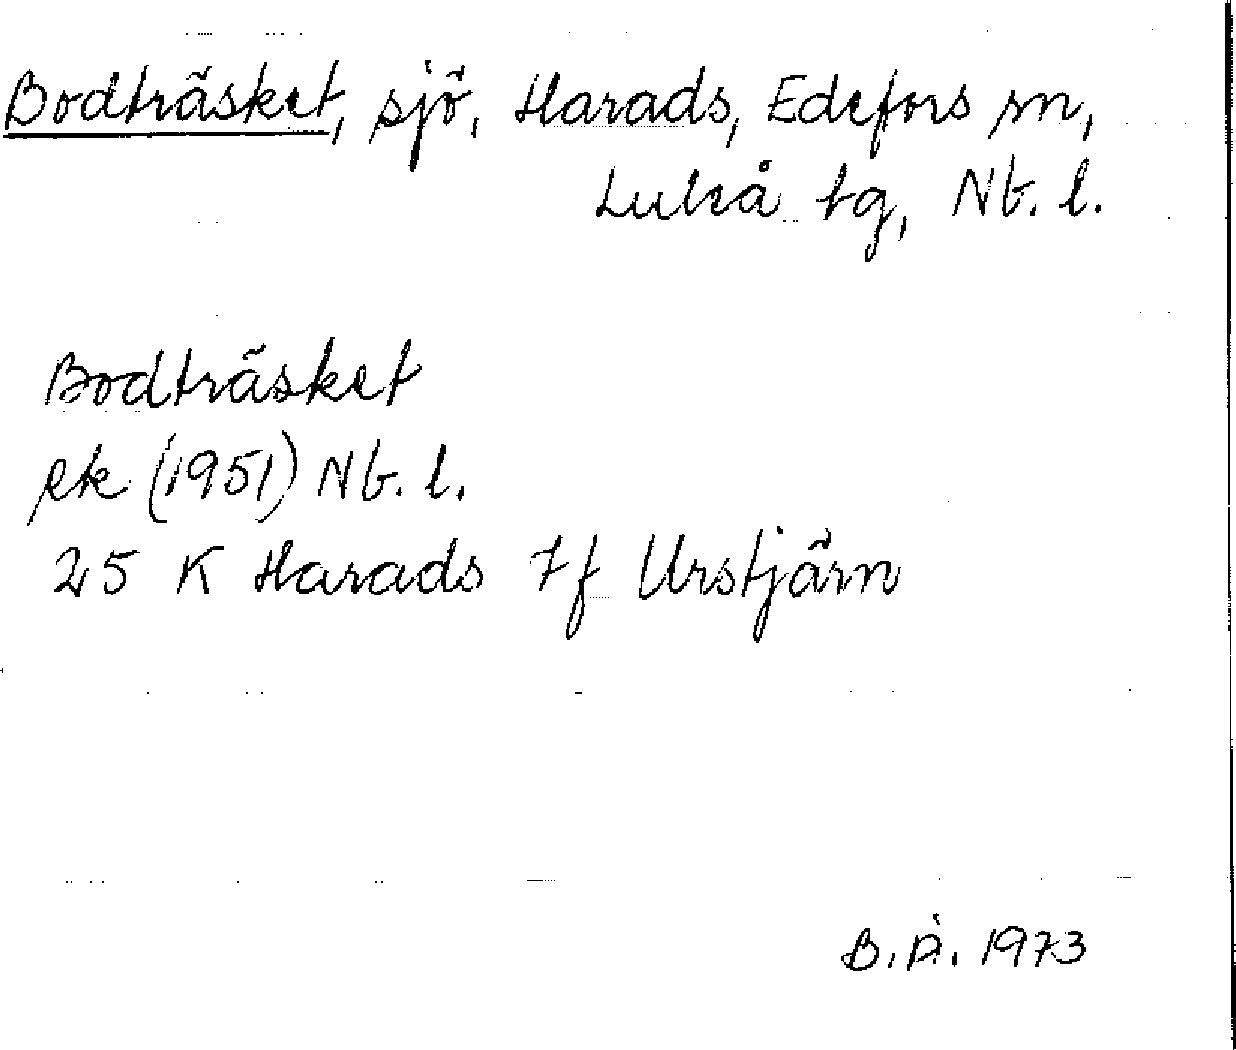 Bodträsket, sjö, Harads, Edefors sn,
Luleå tg, Nb. l.
Bodträsket
rk (1951) Nb. l.
25 K Harads 7f Urstjärn
B.Å. 1973